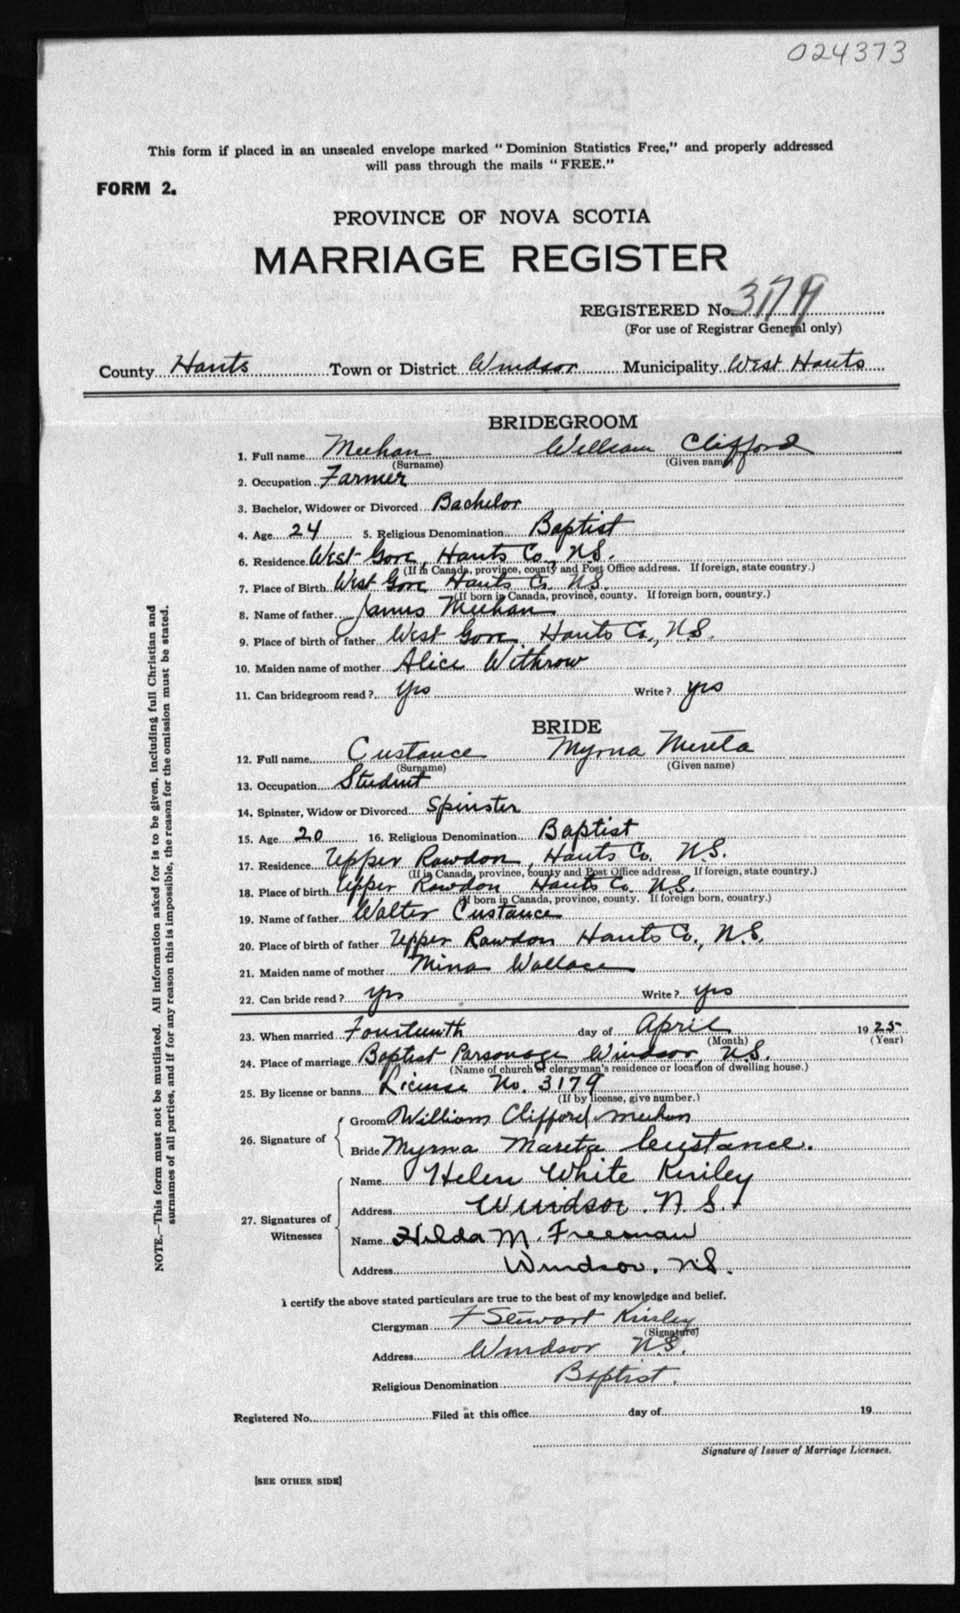 024373
This form if placed in an unsealed envelope marked "Dominion Statistics Free," and properly addressed
will pass through the mails "FREE."
FORM 2.
PROVINCE OF NOVA SCOTIA
MARRIAGE REGISTER
REGISTERED No. 3179
(For use of Registrar General only)
County Hants Town or District Windsor Municipality West Hants
BRIDEGROOM
1. Full name Meehan William Clifford
(Surname) (Given name)
2. Occupation Farmer
3. Bachelor, Widower or Divorced Bachelor
4. Age 24 5. Religious Denomination Baptist
6. Residence West Gore, Hants Co., N.S.
(If in Canada, province, county and Post Office address. If foreign, state country.)
7. Place of Birth West Gore Hants Co. N.S.
(If born in Canada, province, county. If foreign born, country.)
8. Name of father James Meehan
9. Place of birth of father West Gore, Hants Co., N.S.
10. Maiden name of mother Alice Withrow
11. Can bridegroom read? yes Write? yes
BRIDE
12. Full name Custance Myrna Mereta
(Surname) (Given name)
13. Occupation Student
14. Spinster, Widow or Divorced Spinster
15. Age 20 16. Religious Denomination Baptist
17. Residence Upper Rawdon, Hants Co. N.S.
(If in Canada, province, county and Post Office address. If foreign, state country.)
18. Place of birth Upper Rawdon Hants Co. N.S.
(If born in Canada, province, county. If foreign born, country.)
19. Name of father Walter Custance
20. Place of birth of father Upper Rawdon Hants Co., N.S.
21. Maiden name of mother Mina Wallace
22. Can bride read? yes Write? yes
23. When married Fourteenth day of April 1925
(Month) (Year)
24. Place of marriage Baptist Parsonage Windsor, N.S.
(Name of church or clergyman's residence or location of dwelling house.)
25. By license or banns License No. 3179
(If by license, give number.)
26. Signature of Groom William Clifford Meehan
Bride Myrna Mareta Custance.
27. Signatures of Witnesses
Name Helen White Kinley
Address Windsor. N.S.
Name Hilda M. Freeman
Address Windsor. N.S.
I certify the above stated particulars are true to the best of my knowledge and belief.
Clergyman F Stewart Kinley
(Signature)
Address Windsor N.S.
Religious Denomination Baptist.
Registered No. Filed at this office day of 19
Signature of Issuer of Marriage Licenses.
[SEE OTHER SIDE]
NOTE.—This form must not be mutilated. All information asked for is to be given, including full Christian and
surnames of all parties, and if for any reason this is impossible, the reason for the omission must be stated.